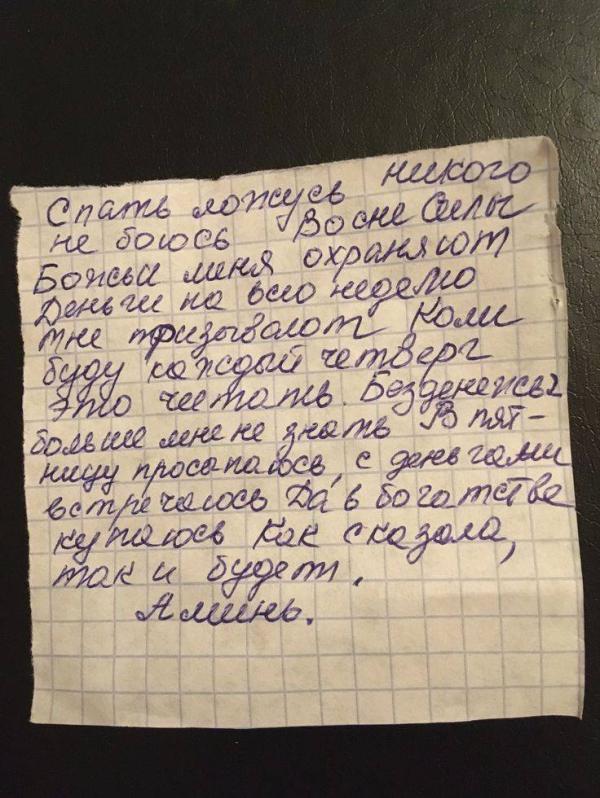 Спать ложусь никого
не боюсь Восне Силы
Божьи меня охраняют
Деньги на всю неделю
мне призывают Коли
буду каждый четверг
это читать. Безденежья
больше мне не знать В пят-
ницу просыпаюсь, с деньгами
встречаюсь Да в богатстве
купаюсь Как сказала,
так и будет.
Аминь.